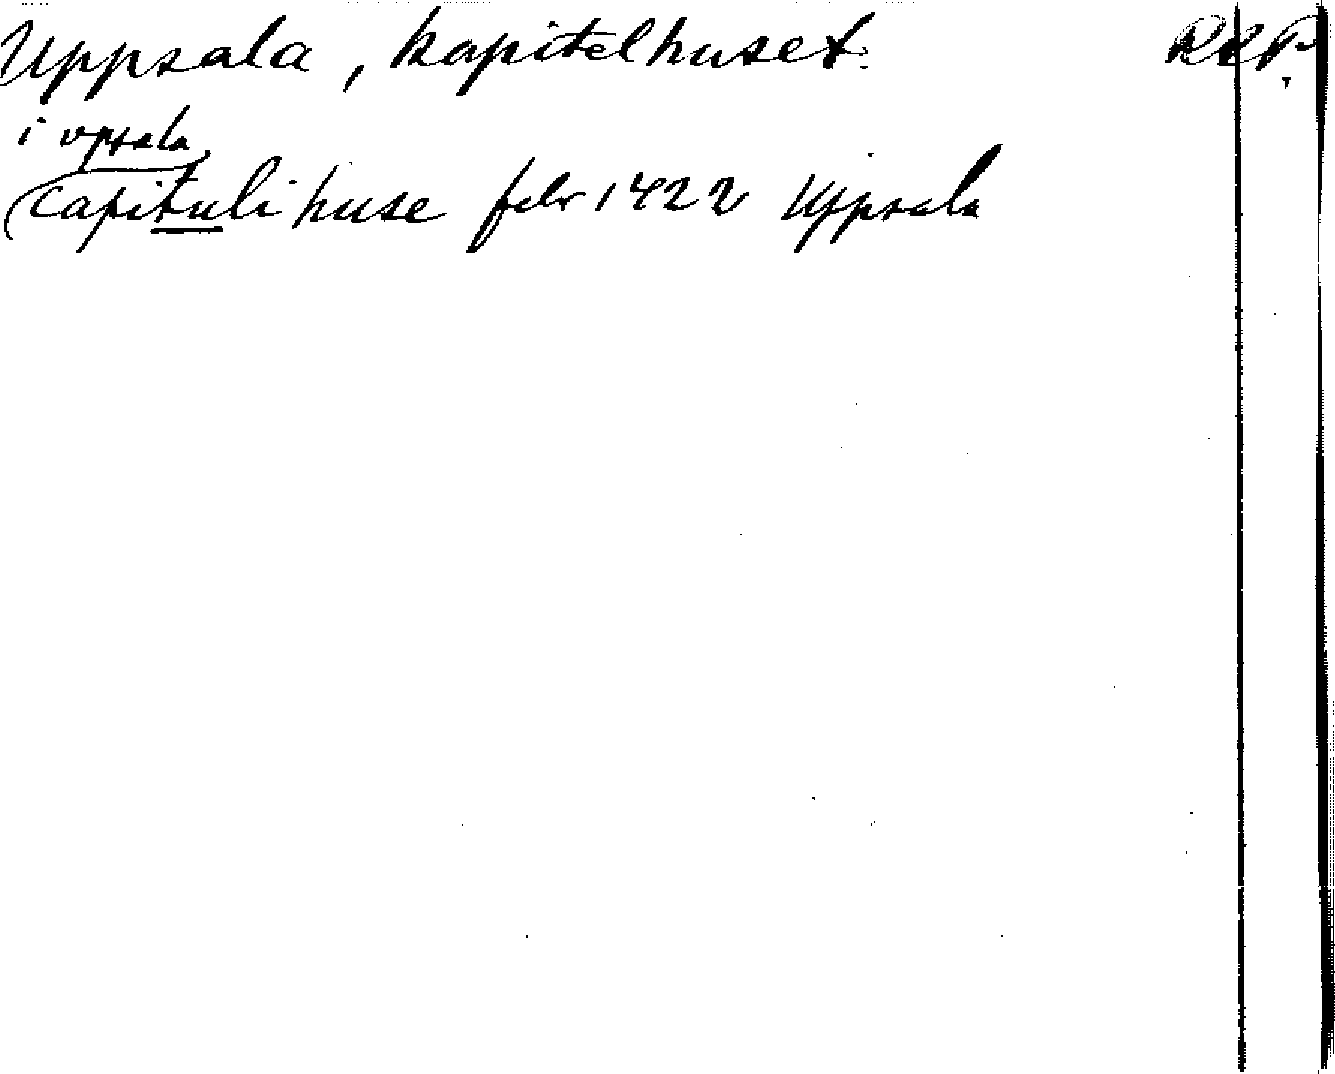 Uppsala, kapitelhuset. RKP.
i vpsala
capituli huse febr 1422 Uppsala